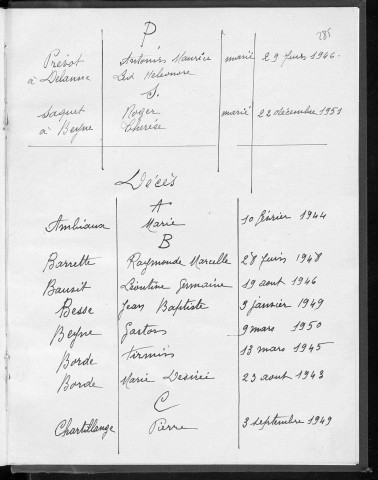 285
P
Prévot Antonin Maurice marié 29 Juin 1946
à Delanne Léa Heleonore
S.
Saquet Roger marié 22 décembre 1951
à Beyne Thérèse
Décès
A
Ambiaux Marie 10 février 1944
B
Barrette Raymonde Marcelle 28 Juin 1948
Bausit Léontine Germaine 19 aout 1946
Besse Jean Baptiste 9 janvier 1949
Beyne Gaston 9 mars 1950
Borde Firmin 13 mars 1945
Borde Marie Desirée 23 aout 1943
C
Chartillange Pierre 3 septembre 1949